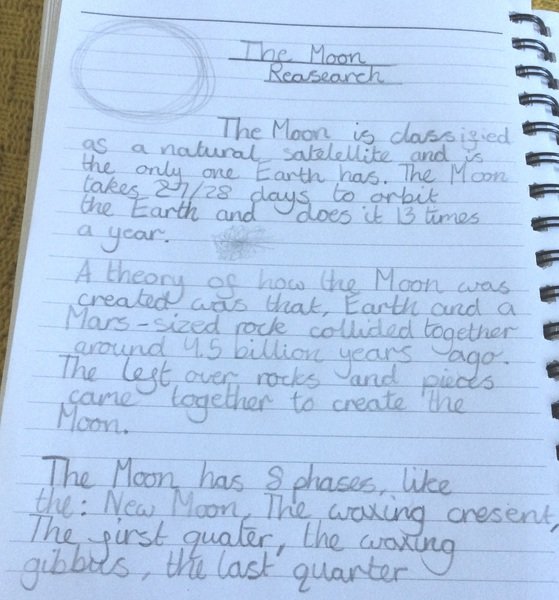 The Moon
Reasearch
The Moon is classified
as a natural satelellite and is
the only one Earth has. The Moon
takes 27/28 days to orbit
the Earth and does it 13 times
a year.
A theory of how the Moon was
created was that, Earth and a
Mars-sized rock collided together
around 4.5 billion years ago.
The left over rocks and pieces
came together to create the
Moon.
The Moon has 8 phases, like
the: New Moon, The waxing cresent,
The first quater, the waxing
gibbus, the last quarter